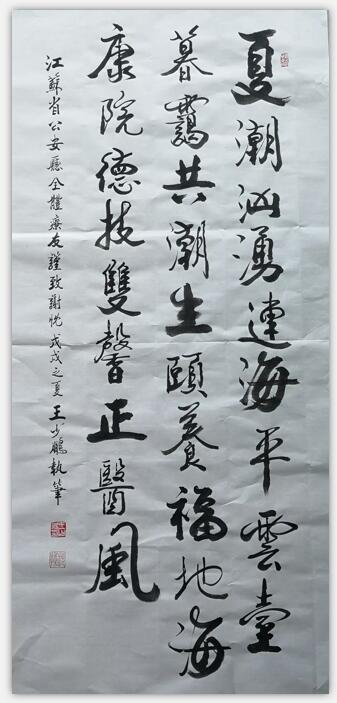 夏潮汹湧連海平雲臺
暮靄共潮生頤養福地海
康院德技雙馨正醫風
江蘇省公安廳全體療友謹致謝忱戊戌之夏王少鵬執筆